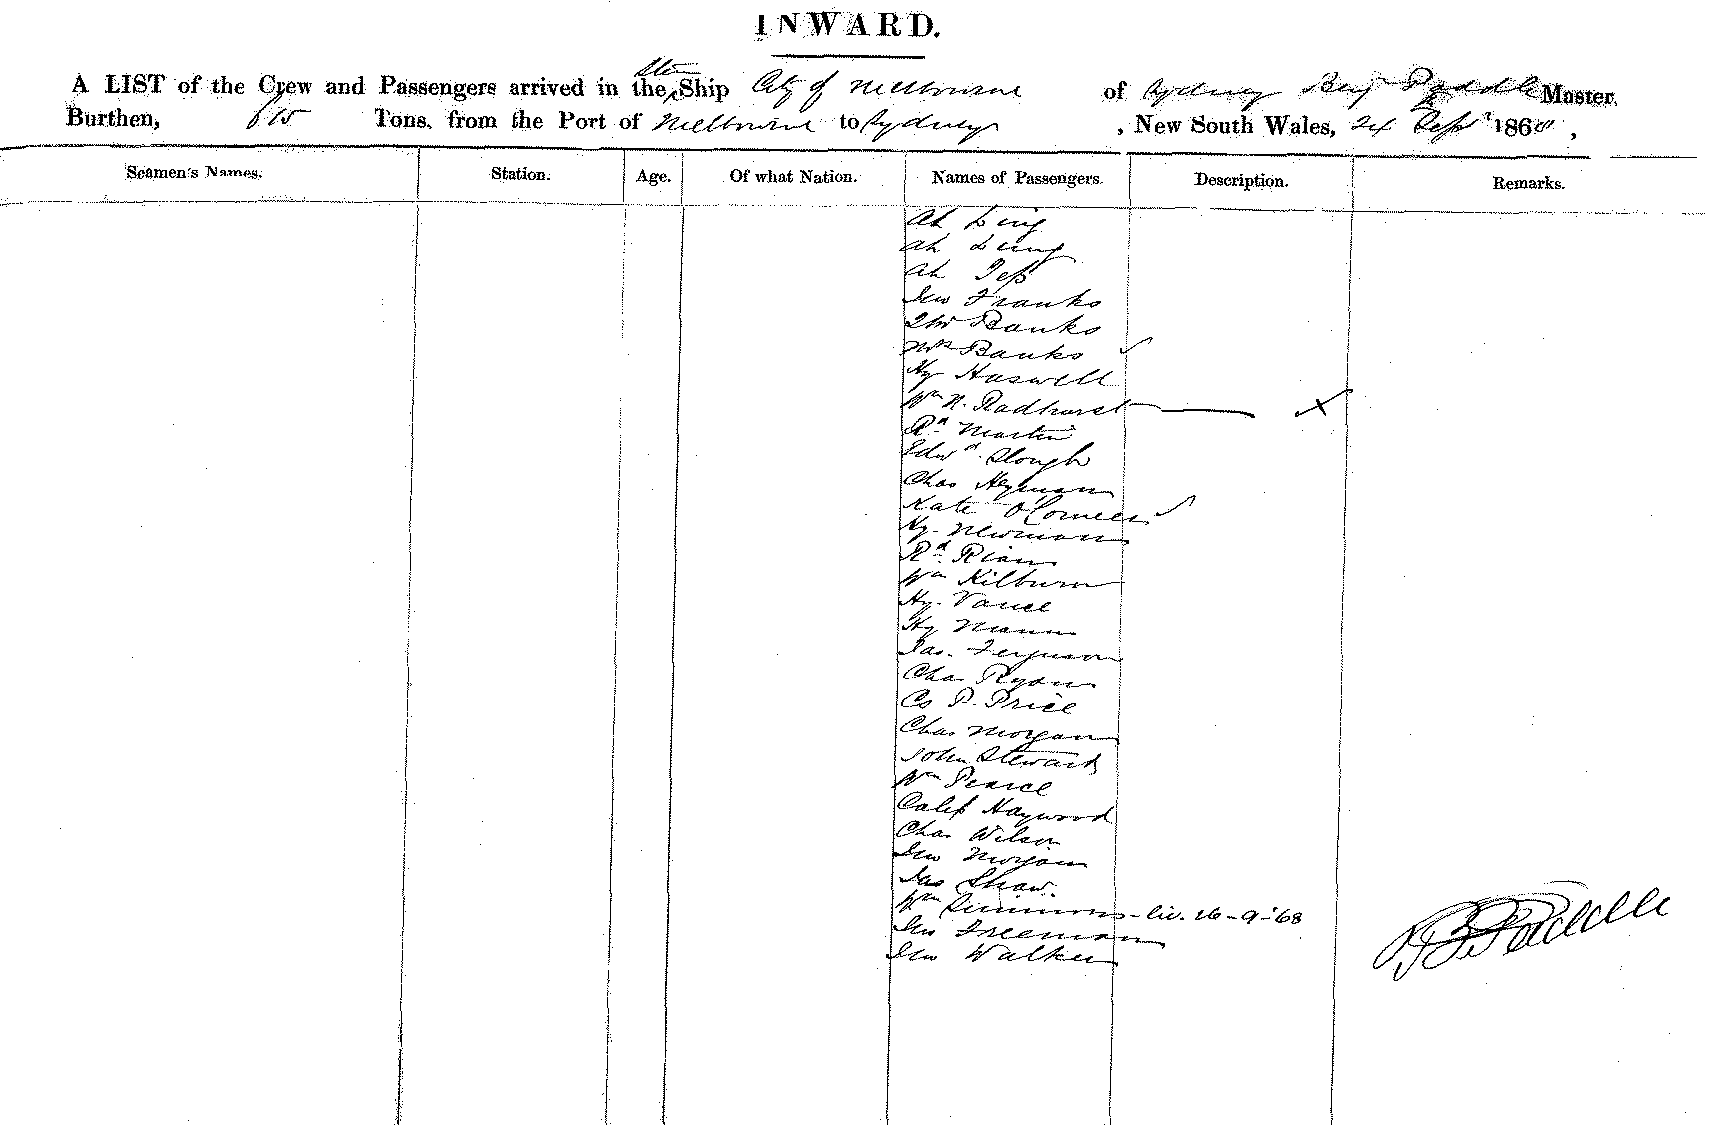 INWARD.
A LIST of the Crew and Passengers arrived in the Ship City of Melbourne of Sydney Benj Paddle Master
Burthen, 615 Tons, from the Port of Melbourne to Sydney, New South Wales, 24 Sept 1868,
Seamen's Names. Station. Age. Of what Nation. Names of Passengers. Description. Remarks.
Ah Ling
Ah
Ah
Franks
Banks
Mrs Banks ✓
Hy Haswell
Wm H. Radhurst — X
Rd Martin
Edwd. Slough
Chas Heyman
Kate O'Connell ✓
Hy. Newman
Rd. Rian
Wm Kilburn
Hy. Vance
Hy Mann
Jas. Ferguson
Chas Ryan
P. Price
Chas Morgan
John Stewart
Wm Pearce
Caleb Haywood
Chas Wilson
Morgan
Jas Shaw.
Wm Simmons - liv. 26-9-'68
Freeman
Walker
B Paddle